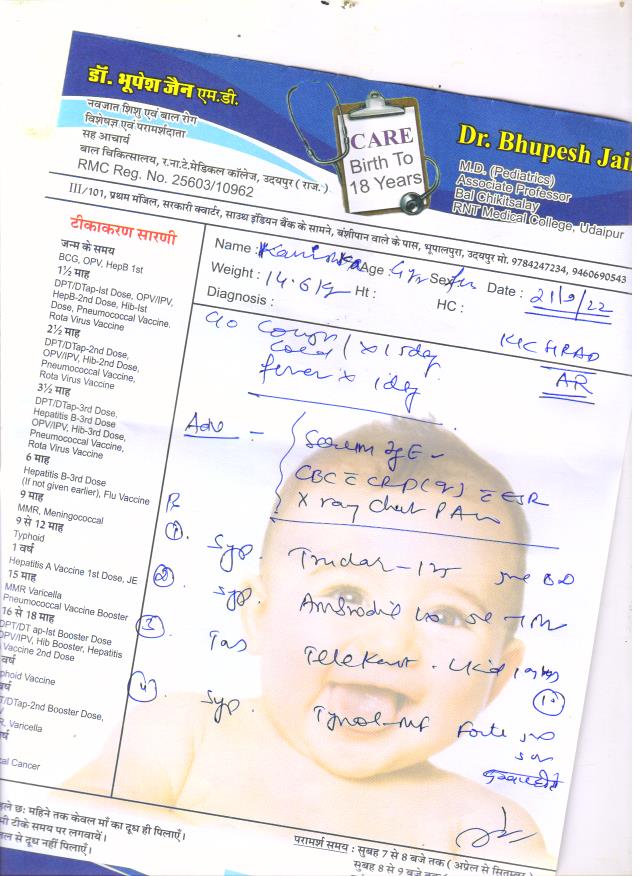 डॉ. भूपेश जैन एम.डी.
नवजात शिशु एवं बाल रोग
विशेषज्ञ एवं परामर्शदाता
सह आचार्य
बाल चिकित्सालय, र.ना.टे.मेडिकल कॉलेज, उदयपुर (राज.)
RMC Reg. No. 25603/10962
CARE
Birth To
18 Years
Dr. Bhupesh Jai
M.D. (Pediatrics)
Associate Professor
Bal Chikitsalay
RNT Medical College, Udaipur
III/101, प्रथम मंजिल, सरकारी क्वार्टर, साउथ इंडियन बैंक के सामने, बंशीपान वाले के पास, भूपालपुरा, उदयपुर मो. 9784247234, 9460690543
टीकाकरण सारणी
जन्म के समय
BCG, OPV, HepB 1st
1½ माह
DPT/DTap-Ist Dose, OPV/IPV,
HepB-2nd Dose, Hib-Ist
Dose, Pneumococcal Vaccine,
Rota Virus Vaccine
2½ माह
DPT/DTap-2nd Dose,
OPV/IPV, Hib-2nd Dose,
Pneumococcal Vaccine,
Rota Virus Vaccine
3½ माह
DPT/DTap-3rd Dose,
Hepatitis B-3rd Dose
OPV/IPV, Hib-3rd Dose,
Pneumococcal Vaccine,
Rota Virus Vaccine
6 माह
Hepatitis B-3rd Dose
(If not given earlier), Flu Vaccine
9 माह
MMR, Meningococcal
9 से 12 माह
Typhoid
1 वर्ष
Hepatitis A Vaccine 1st Dose, JE
15 माह
MMR Varicella
Pneumococcal Vaccine Booster
16 से 18 माह
DPT/DT ap-Ist Booster Dose
OPV/IPV, Hib Booster, Hepatitis
Vaccine 2nd Dose
वर्ष
phoid Vaccine
वर्ष
T/DTap-2nd Booster Dose,
R. Varicella
वर्ष
cal Cancer
Name : Age : 4 yr Sex : Date : 21/9/22
Weight : 14.6 kg Ht : HC :
Diagnosis :
c/o Cough
Cold / x 15 day
fever x 1 day
AR
Adv - Serum IgE
CBC CRP (q) ESR
X ray Chest PA
Rx
1. Syp.
2. Syp. Ambrodil
3. Tab Telekast
4. Syp. Forte
10
हले छः महिने तक केवल माँ का दूध ही पिलाएँ।
मी टीके समय पर लगवायें।
तल से दूध नहीं पिलाएँ।
परामर्श समय : सुबह 7 से 8 बजे तक ( अप्रेल से सितम्बर
सुबह 8 से 9 बजे तक